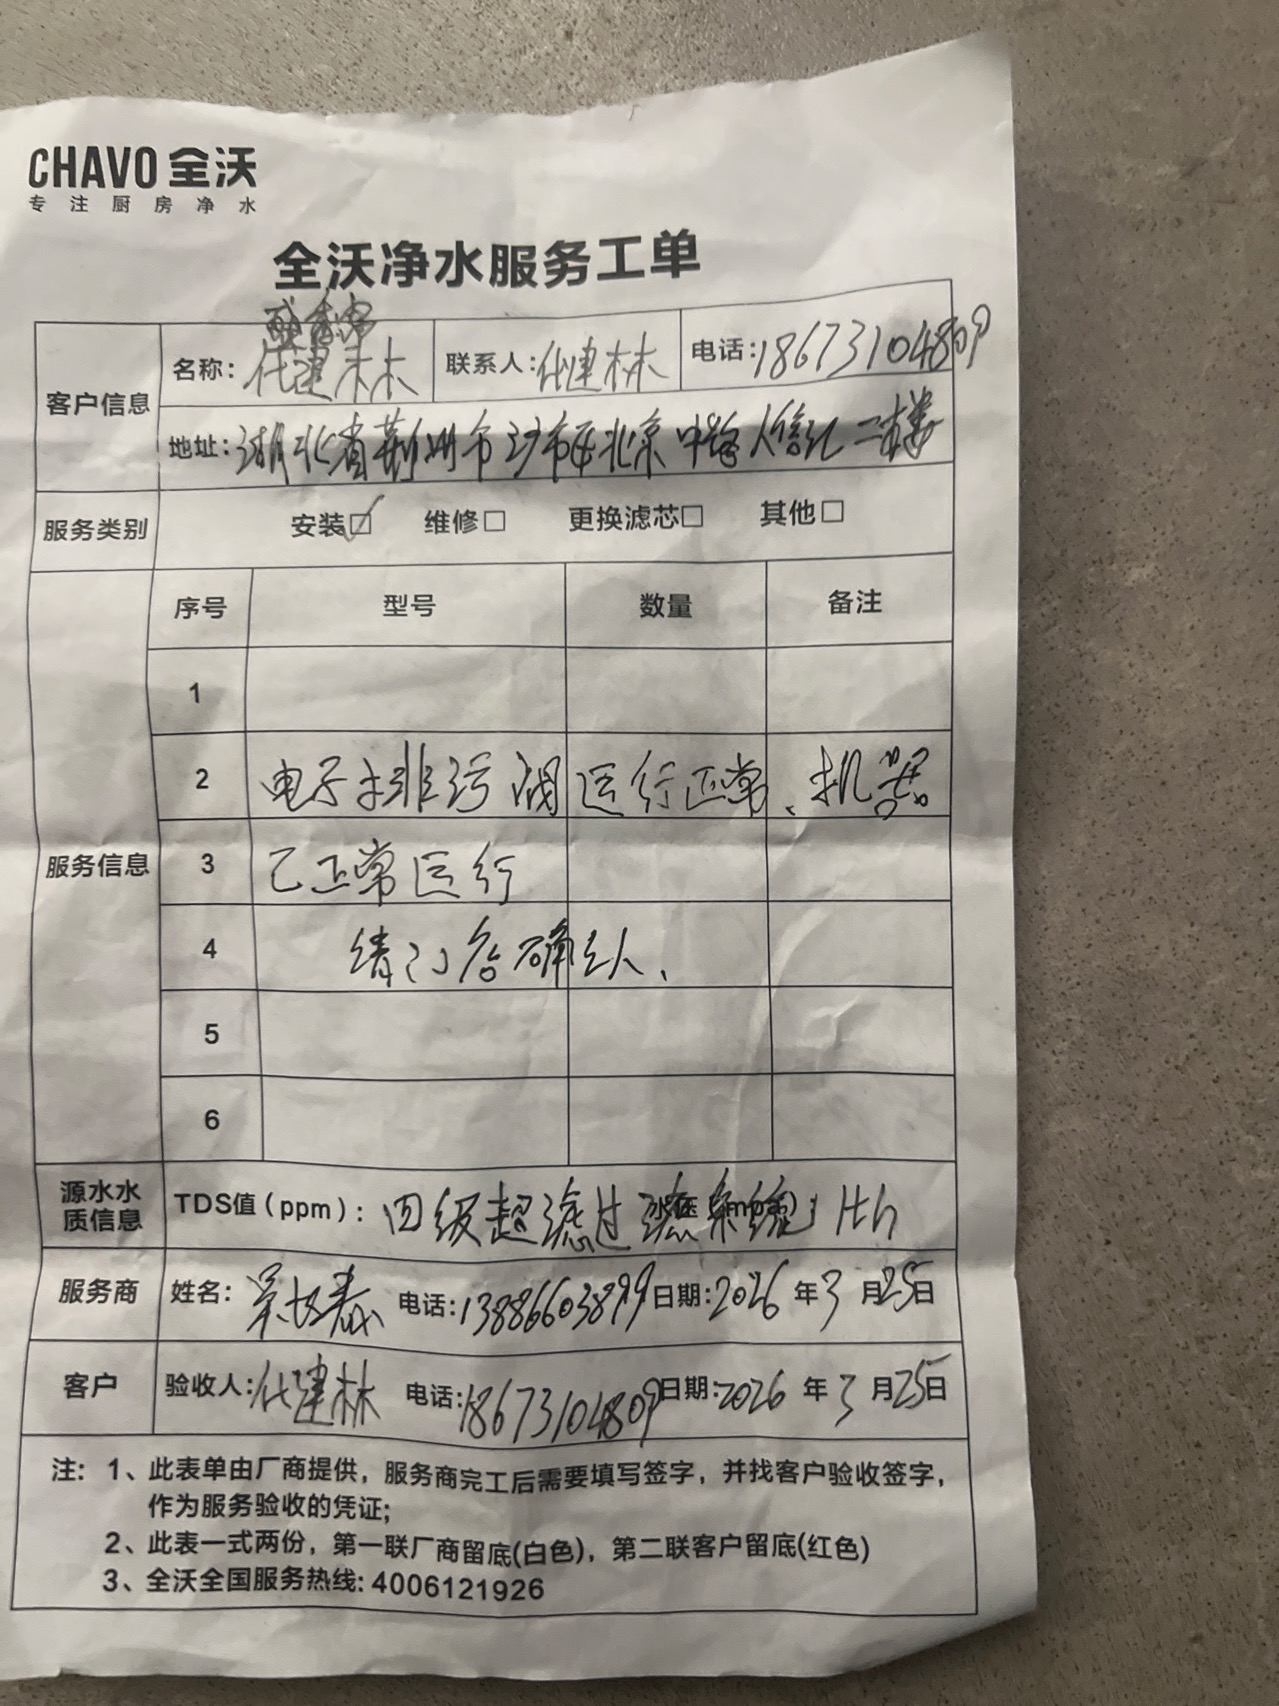 CHAVO 全沃
专注厨房净水
全沃净水服务工单
客户信息
名称: 代建林 联系人: 代建林 电话: 18673104809
地址: 湖北省荆州市沙市区北京中路人信汇二楼
服务类别 安装☑ 维修□ 更换滤芯□ 其他□
服务信息
序号 型号 数量 备注
1
2 电子排污阀运行正常、机器
3 已正常运行
4 请门台确认、
5
6
源水水质信息 TDS值（ppm）: 四级超滤过滤系统 1th
服务商 姓名: 电话: 13886603899 日期: 2026 年 3 月 25 日
客户 验收人: 代建林 电话: 18673104809 日期: 2026 年 3 月 25 日
注: 1、此表单由厂商提供，服务商完工后需要填写签字，并找客户验收签字，
作为服务验收的凭证;
2、此表一式两份，第一联厂商留底(白色)，第二联客户留底(红色)
3、全沃全国服务热线: 4006121926